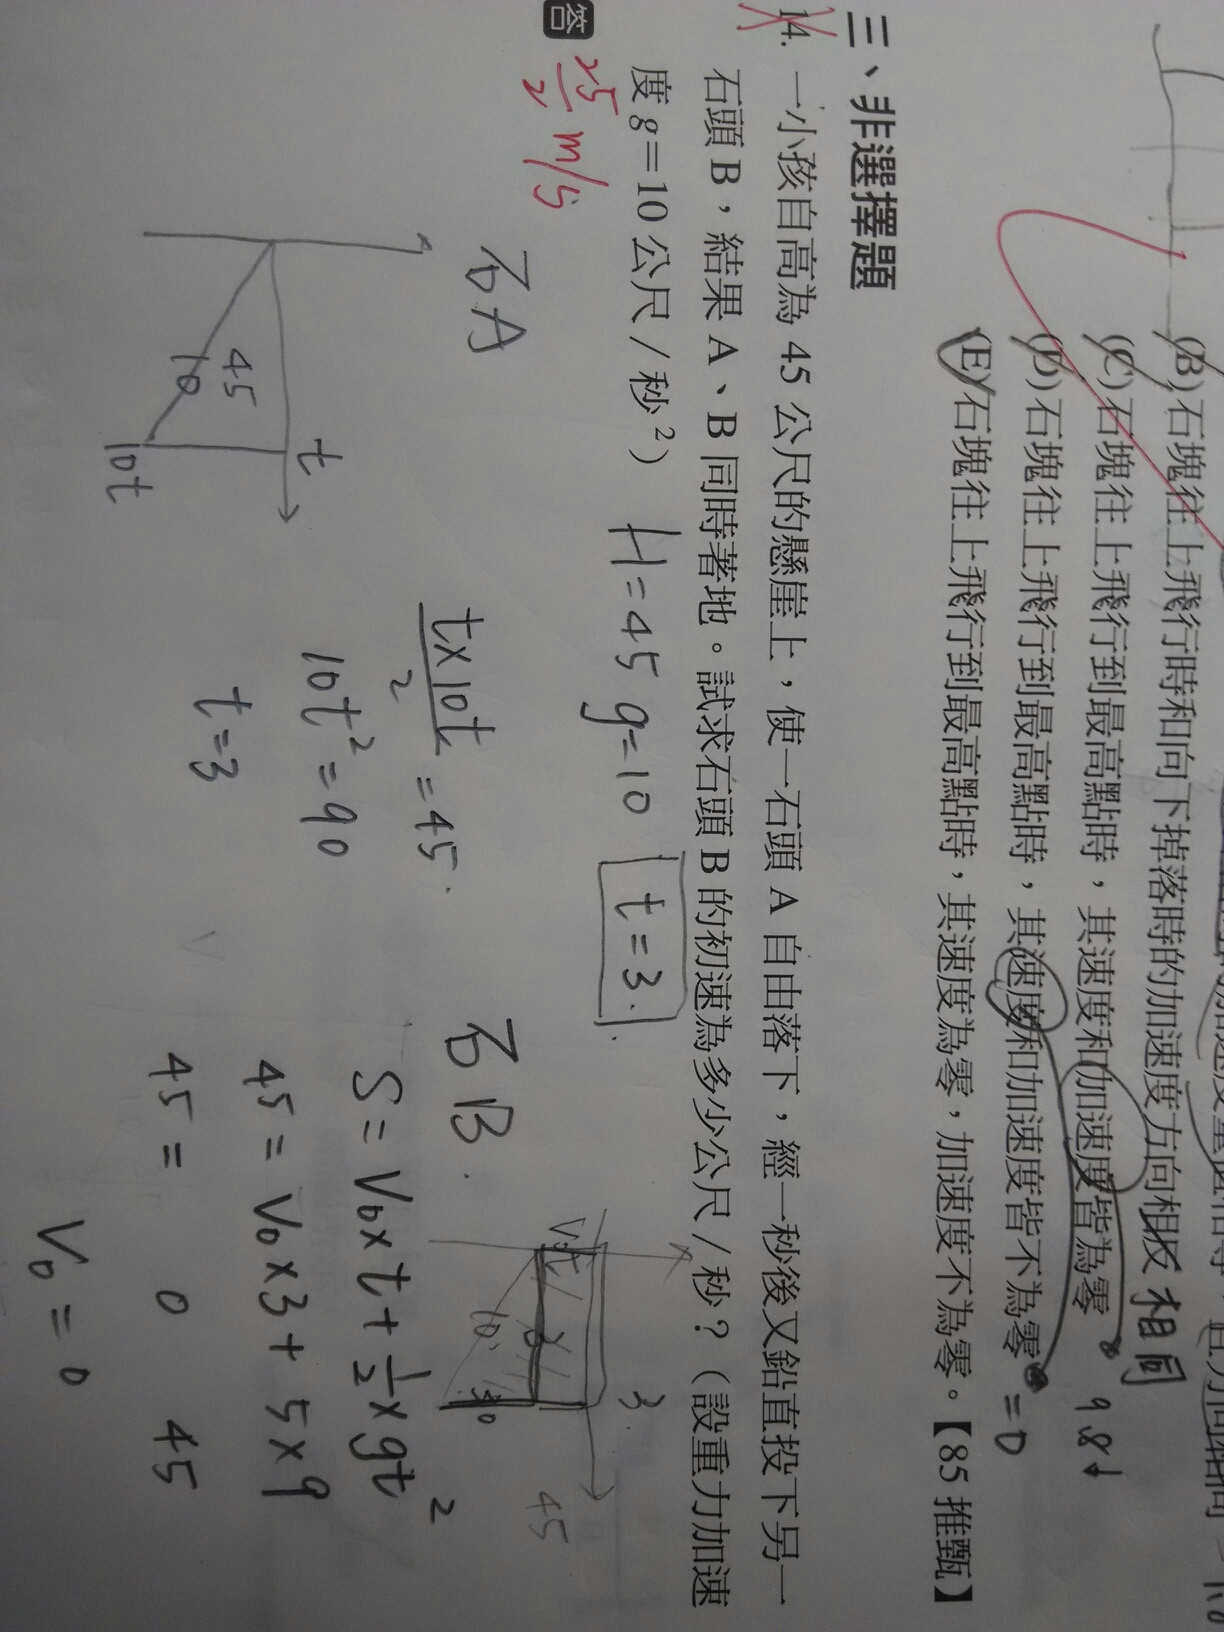 (B)石塊往上飛行時和向下掉落時的加速度方向相反 相同
(C)石塊往上飛行到最高點時，其速度和加速度皆為零 9.8↓
(D)石塊往上飛行到最高點時，其速度和加速度皆不為零 =0
(E)石塊往上飛行到最高點時，其速度為零，加速度不為零。【85 推甄】
三、非選擇題
14. 一小孩自高為 45 公尺的懸崖上，使一石頭 A 自由落下，經一秒後又鉛直投下另一
石頭 B，結果 A、B 同時著地。試求石頭 B 的初速為多少公尺／秒？（設重力加速
度 g＝10 公尺／秒²） H=45 g=10 t=3.
答 25/2 m/s
石A
t
45
10
10t
t×10t/2 = 45.
10t²=90
t=3
石B.
V0t
3
10
45
S=V0×t+1/2×gt²
45=V0×3+5×9
45= 0 45
V0=0